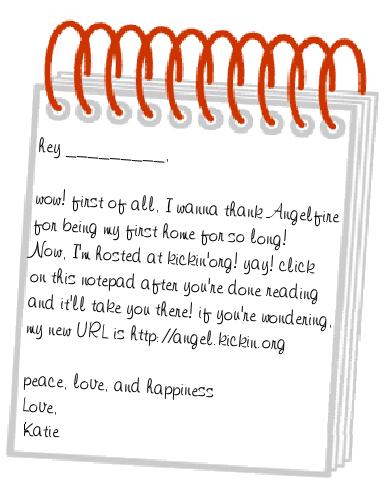 hey __________,
wow! first of all, I wanna thank Angelfire
for being my first home for so long!
Now, I'm hosted at kickin'org! yay! click
on this notepad after you're done reading
and it'll take you there! if you're wondering,
my new URL is http://angel.kickin.org
peace, love, and happiness
Love,
Katie